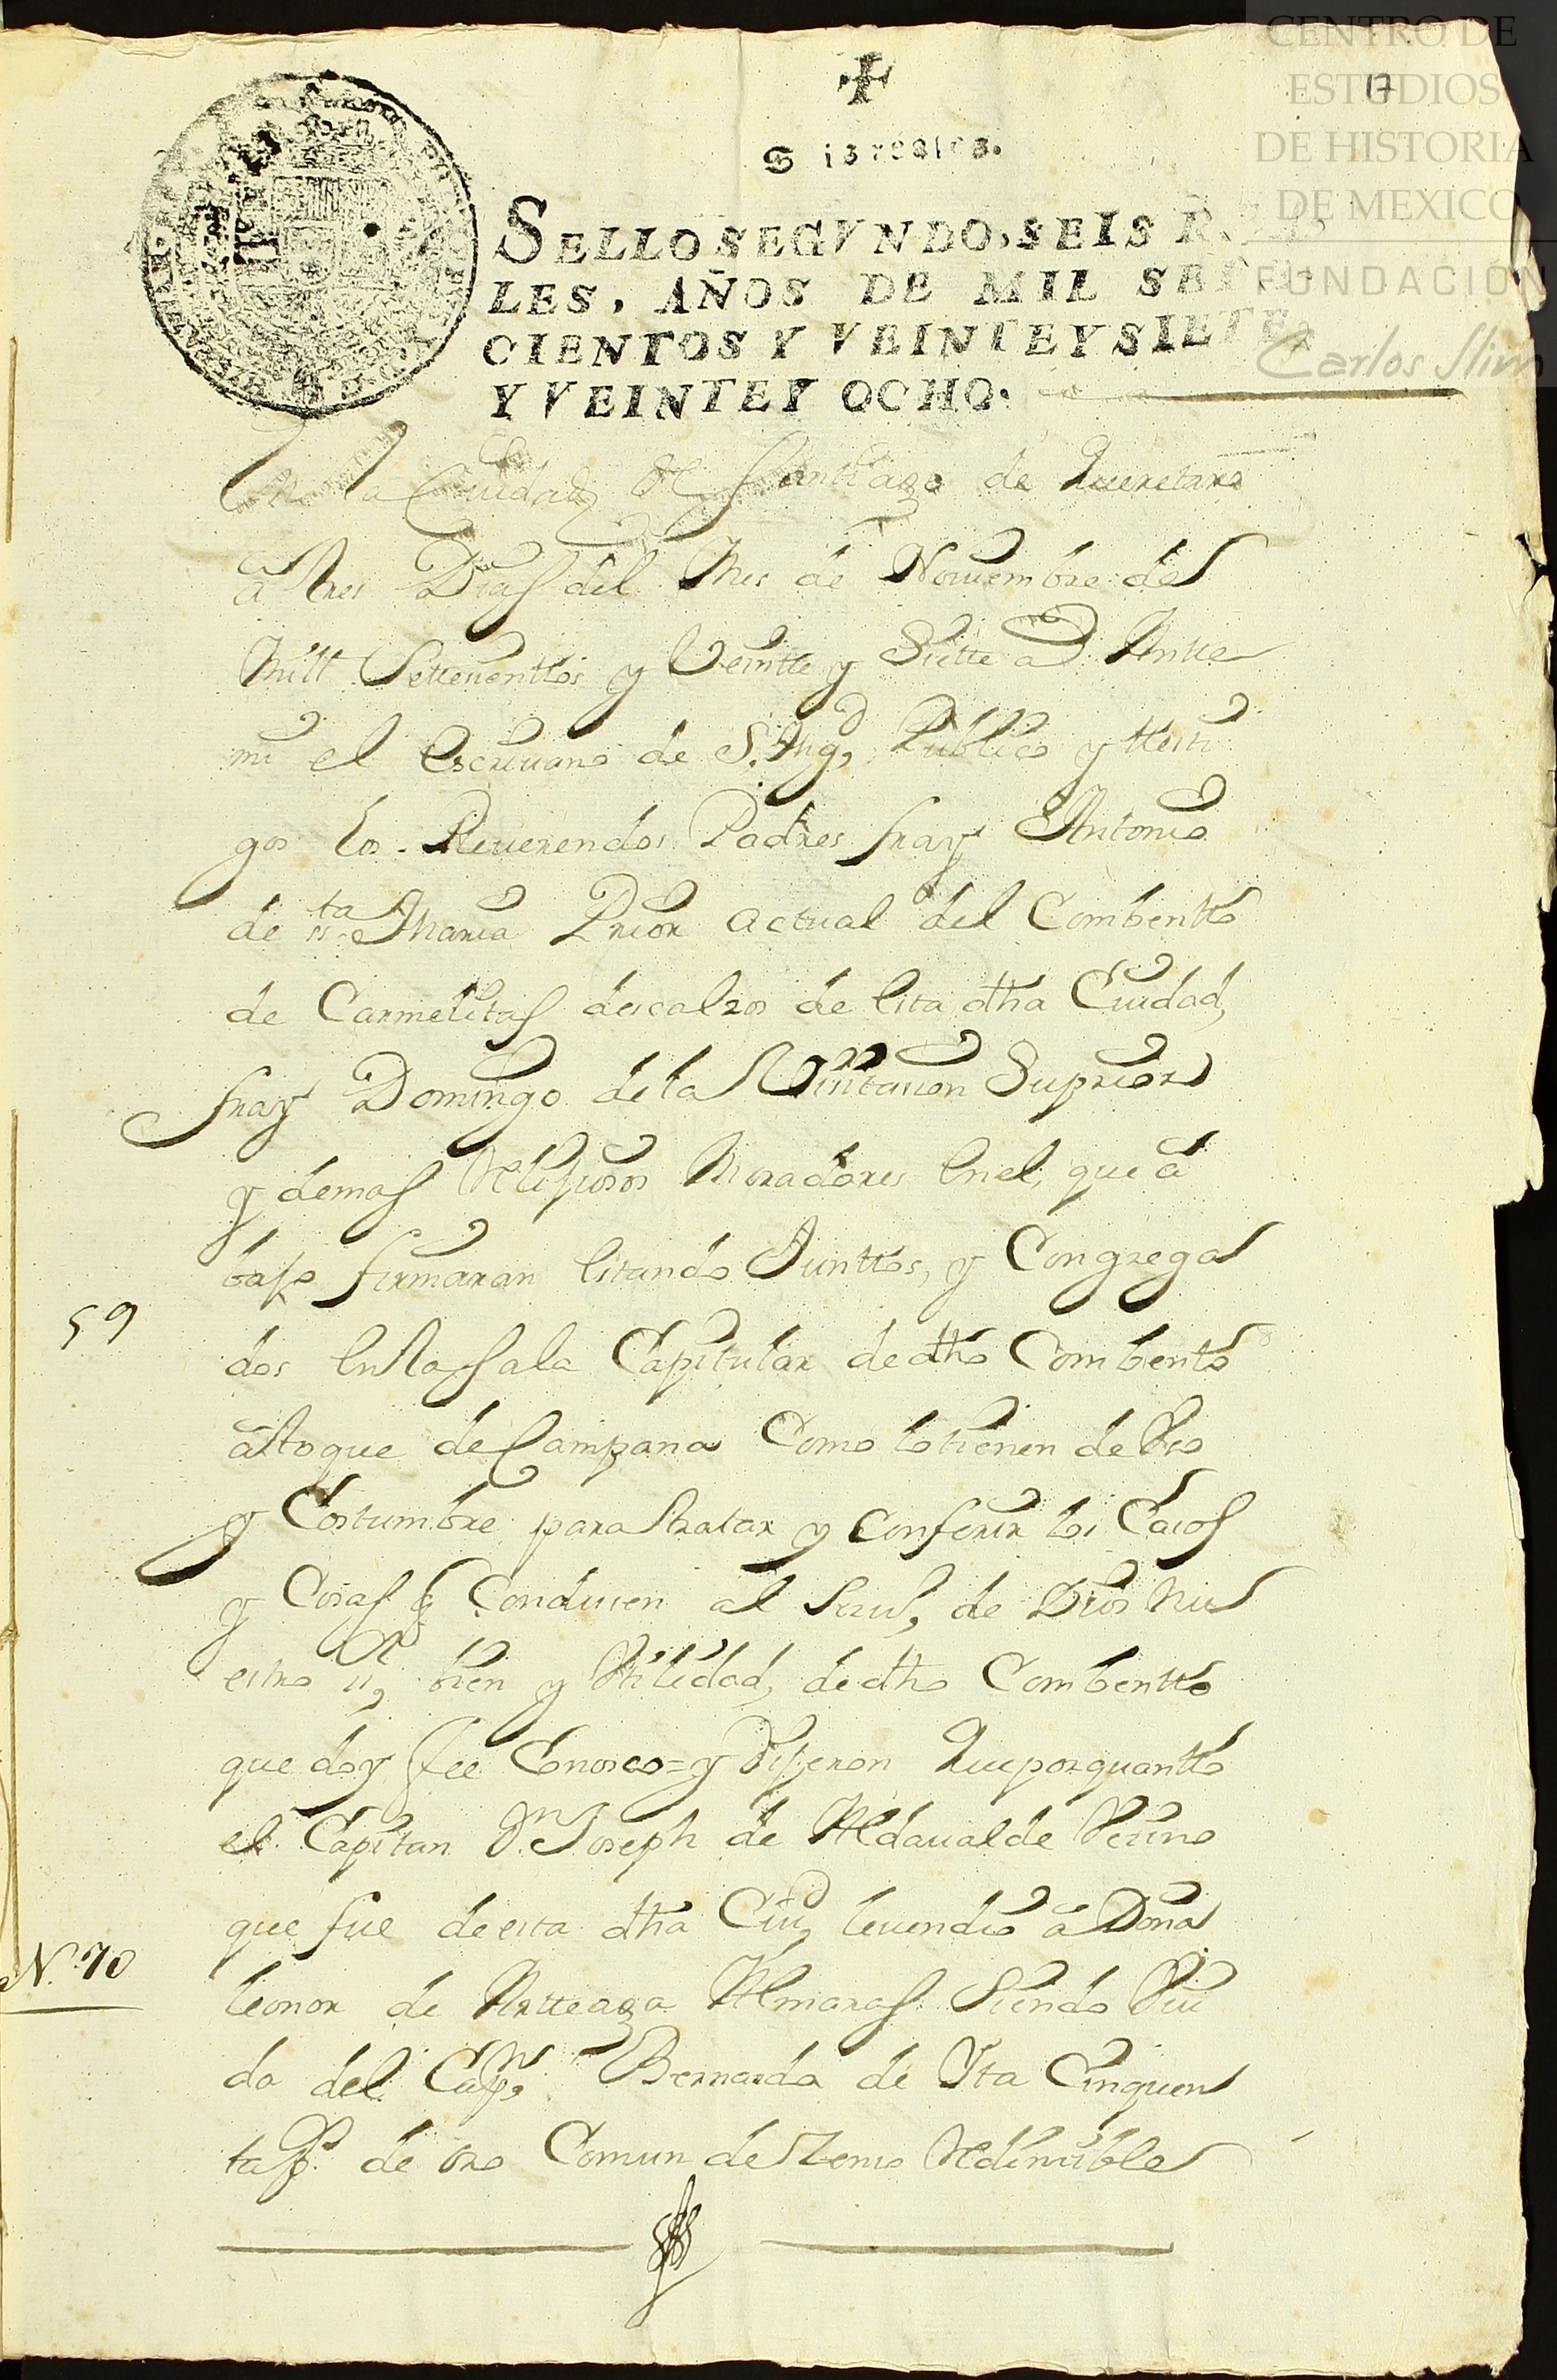 17
CENTRO DE
ESTUDIOS
DE HISTORIA
DE MEXICO
FUNDACIÓN
Carlos Slim
Seisreales.
SELLO SEGVNDO, SEIS REA-
LES, AÑOS DE MIL SETE-
CIENTOS Y VEINTE Y SIETE,
Y VEINTE Y OCHO.
En la Ciudad de Santiago de Queretaro
â tres Dias del Mes de Nouiembre de
Mill Settecienttos y Veintte y Siette as. Antte
mi el Escriuano de S. Mgd, Publico y testi
gos Los Reuerendos Padres fray Antonio
de sta Maria Prior actual del Combentto
de Carmelitas descalzos de esta dha Ciudad,
fray Domingo de la Visitacion Suprior
y demas Relijiosos Moradores en el, que â
bajo firmaran estando Junttos, y Congrega
59
dos en la sala Capitular de dho Combento
â toque de Campana Como lo tienen de Vso
y Costumbre para tratar y conferir los Casos
y Cosas q Conducen al seru, de Dios Nu
estro sr, bien y Vtilidad, de dho Combentto
que doy fee Conosco = y Dijeron Que por quantto
el Capitan Dn Joseph de Aldaualde Vecino
que fue de esta dha Ciud, le uendio â Dona
N. 70
leonor de Artteaga Almaras Siendo Viu
da del Capn, Bernardo de Yta Cinquen
ta ps. de oro Comun de Zenso Redimible